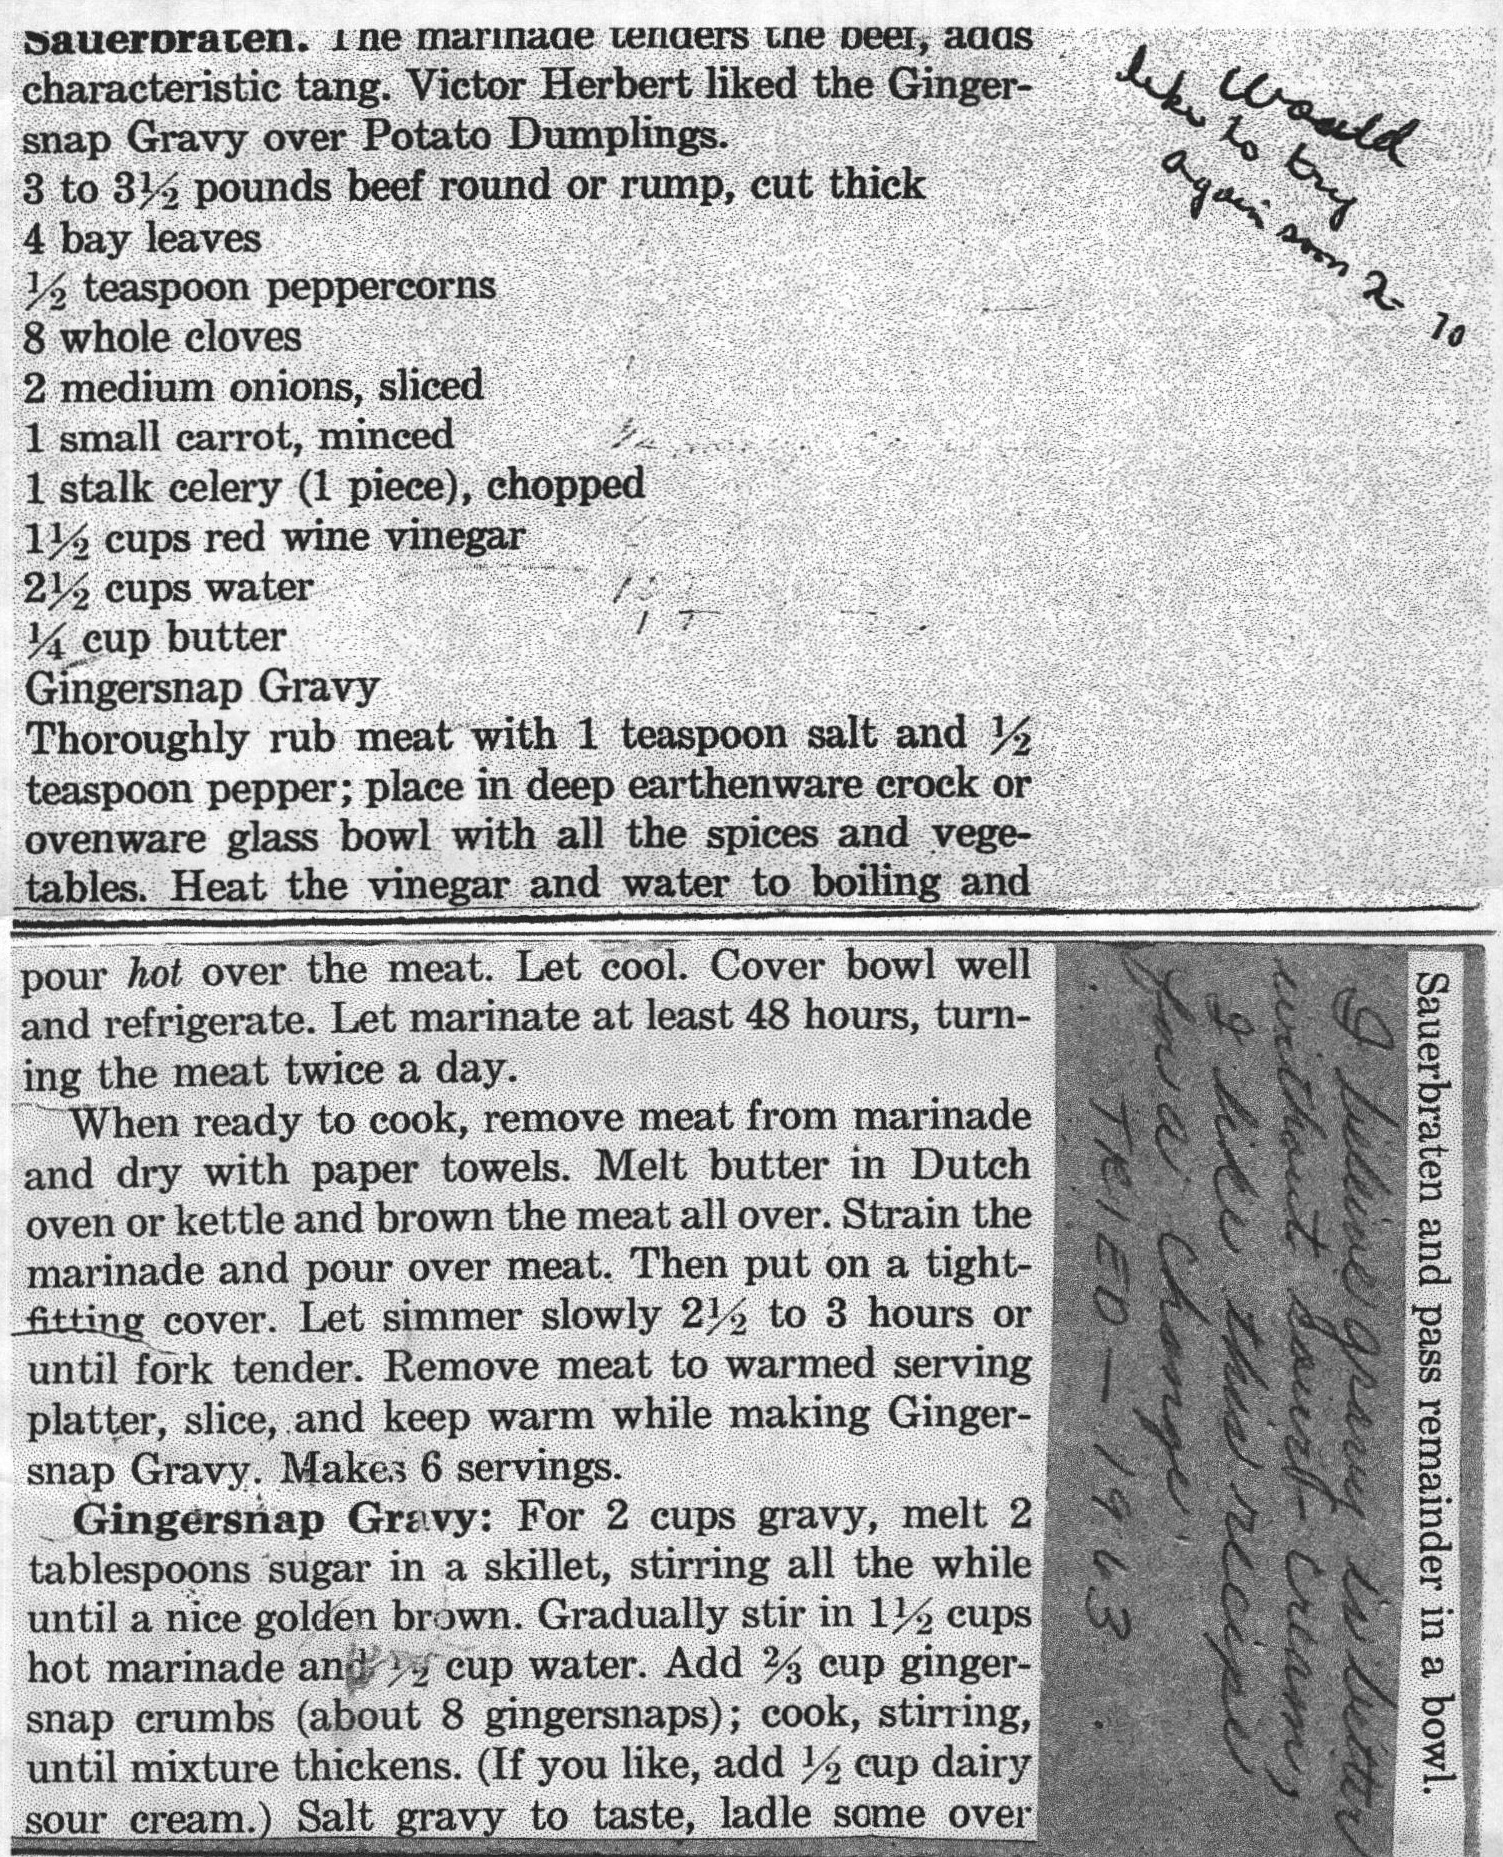 Sauerbraten. The marinade tenders the beef, adds
characteristic tang. Victor Herbert liked the Ginger-
snap Gravy over Potato Dumplings.
3 to 3½ pounds beef round or rump, cut thick
4 bay leaves
½ teaspoon peppercorns
8 whole cloves
2 medium onions, sliced
1 small carrot, minced
1 stalk celery (1 piece), chopped
1½ cups red wine vinegar
2½ cups water
¼ cup butter
Gingersnap Gravy
Thoroughly rub meat with 1 teaspoon salt and ½
teaspoon pepper; place in deep earthenware crock or
ovenware glass bowl with all the spices and vege-
tables. Heat the vinegar and water to boiling and
Would
like to try
again soon 2-70
pour hot over the meat. Let cool. Cover bowl well
and refrigerate. Let marinate at least 48 hours, turn-
ing the meat twice a day.
When ready to cook, remove meat from marinade
and dry with paper towels. Melt butter in Dutch
oven or kettle and brown the meat all over. Strain the
marinade and pour over meat. Then put on a tight-
fitting cover. Let simmer slowly 2½ to 3 hours or
until fork tender. Remove meat to warmed serving
platter, slice, and keep warm while making Ginger-
snap Gravy. Makes 6 servings.
Gingersnap Gravy: For 2 cups gravy, melt 2
tablespoons sugar in a skillet, stirring all the while
until a nice golden brown. Gradually stir in 1½ cups
hot marinade and ½ cup water. Add ⅔ cup ginger-
snap crumbs (about 8 gingersnaps); cook, stirring,
until mixture thickens. (If you like, add ½ cup dairy
sour cream.) Salt gravy to taste, ladle some over
Sauerbraten and pass remainder in a bowl.
I believe gravy is better
without sour-cream,
I like this recipe
for a change.
TRIED - 1963.